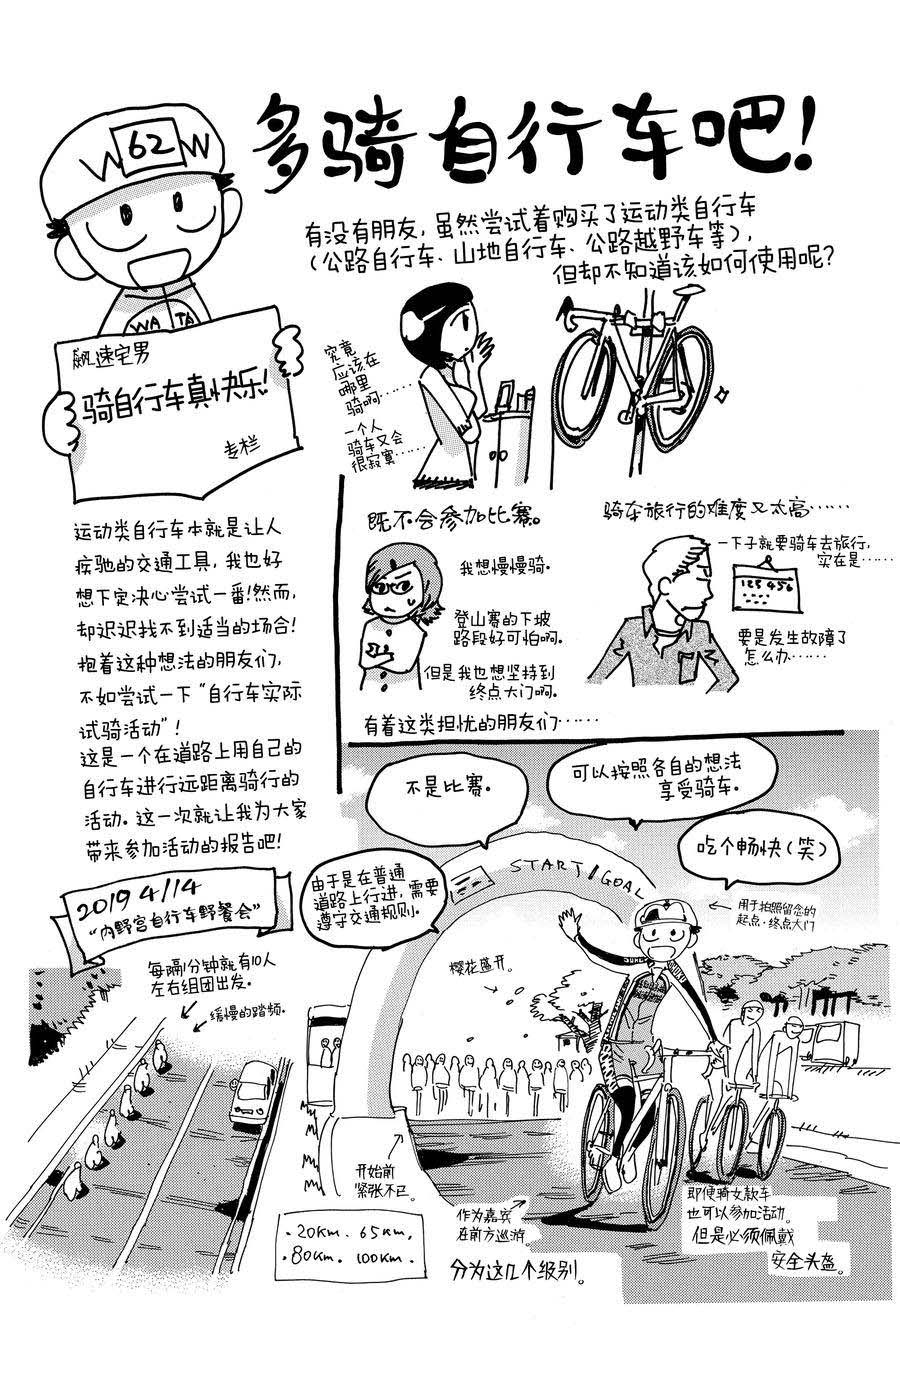 多骑自行车吧!
62
W W
WA TA
飙速宅男
骑自行车真快乐!
专栏
有没有朋友,虽然尝试着购买了运动类自行车
(公路自行车、山地自行车、公路越野车等),
但却不知道该如何使用呢?
究竟
应该在
哪里
骑啊……
一个人
骑车又会
很寂寞……
运动类自行车本就是让人
疾驰的交通工具,我也好
想下定决心尝试一番!然而,
却迟迟找不到适当的场合!
抱着这种想法的朋友们,
不如尝试一下“自行车实际
试骑活动”!
这是一个在道路上用自己的
自行车进行远距离骑行的
活动。这一次就让我为大家
带来参加活动的报告吧!
既不会参加比赛。
我想慢慢骑。
登山赛的下坡
路段好可怕啊。
但是我也想坚持到
终点大门啊。
骑车旅行的难度又太高……
一下子就要骑车去旅行,
实在是……
123 456
要是发生故障了
怎么办……
有着这类担忧的朋友们……
不是比赛。
可以按照各自的想法
享受骑车。
吃个畅快(笑)
2019 4/14
“内野宫自行车野餐会”
由于是在普通
道路上行进,需要
遵守交通规则。
START/GOAL
用于拍照留念的
起点·终点大门
每隔1分钟就有10人
左右组团出发。
缓慢的踏频。
樱花盛开。
开始前
紧张不已。
作为嘉宾
在前方巡游。
即使骑女款车
也可以参加活动。
但是必须佩戴
安全头盔。
·20km. 65km.
·80km. 100km.
分为这几个级别。